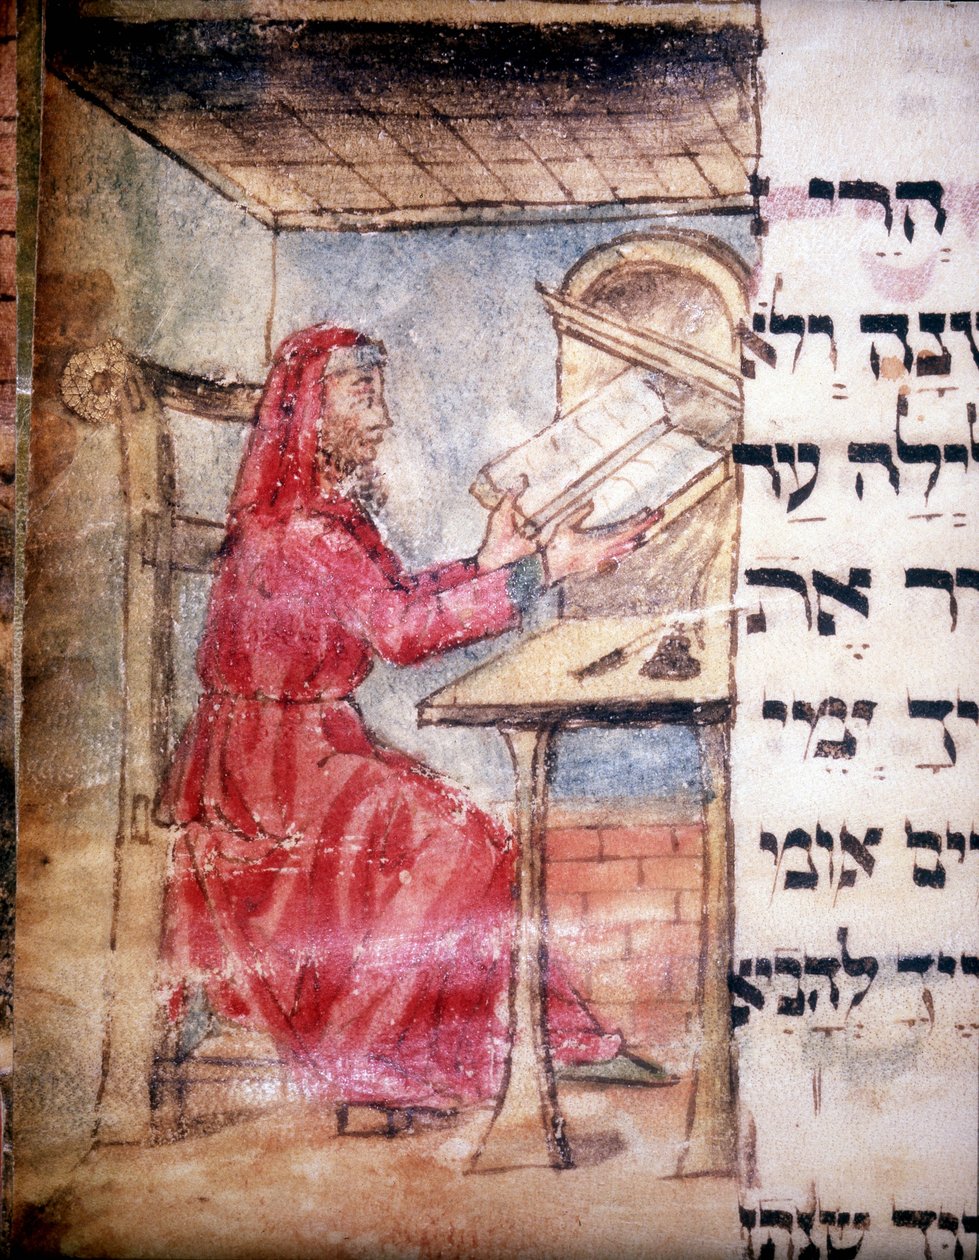 הרי
שנה ולא
לילה עד
ר את
יך ימי
ים אומ
ייך להביא